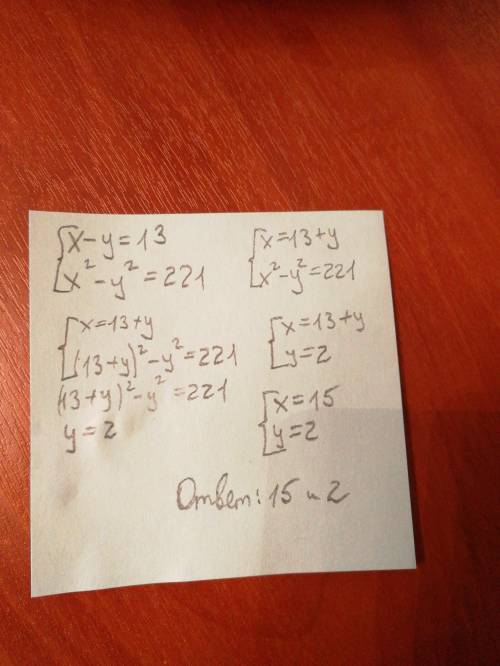 x-y=13
x²-y²=221
x=13+y
x²-y²=221
x=13+y
(13+y)²-y²=221
(13+y)²-y²=221
y=2
x=13+y
y=2
x=15
y=2
Ответ: 15 и 2